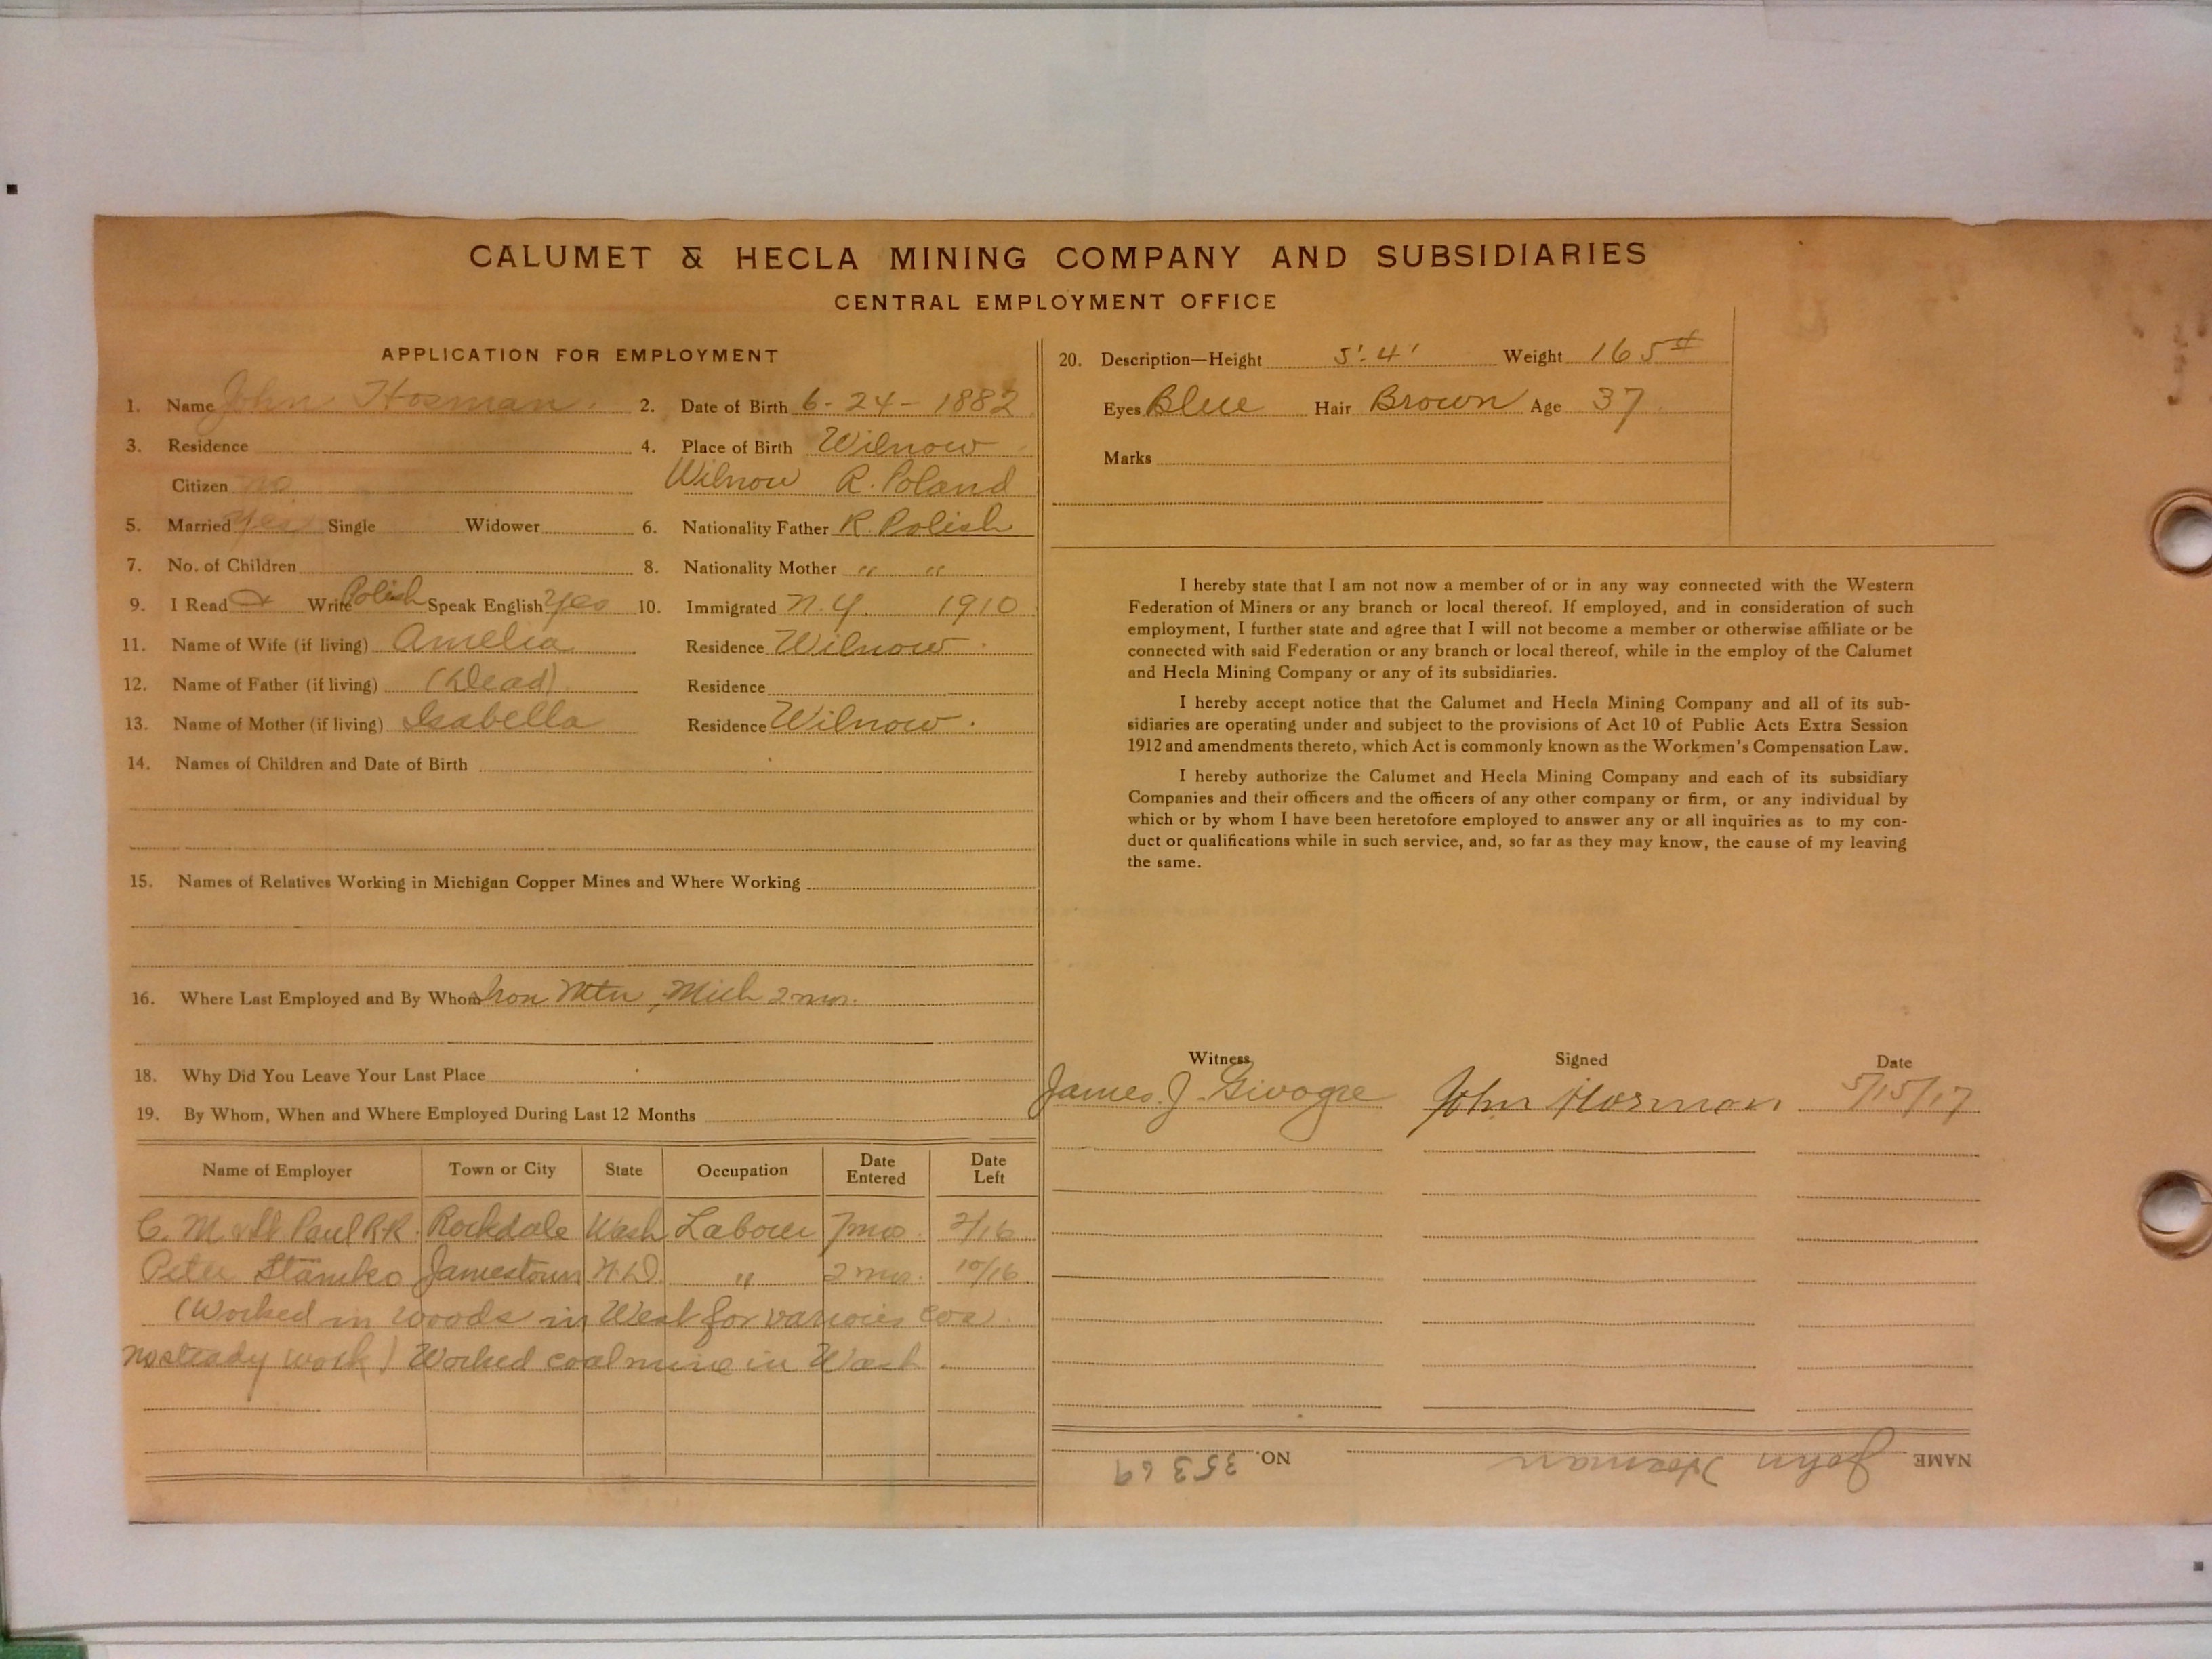 CALUMET & HECLA MINING COMPANY AND SUBSIDIARIES
CENTRAL EMPLOYMENT OFFICE
APPLICATION FOR EMPLOYMENT
1. Name John Hosman. 2. Date of Birth 6-24-1882
3. Residence 4. Place of Birth Wilnow
Citizen no. Wilnow R. Poland
5. Married Yes Single Widower 6. Nationality Father R. Polish
7. No. of Children 8. Nationality Mother " "
9. I Read & Write Polish Speak English? yes 10. Immigrated N.Y. 1910
11. Name of Wife (if living) Amelia Residence Wilnow.
12. Name of Father (if living) (Dead) Residence
13. Name of Mother (if living) Isabella Residence Wilnow.
14. Names of Children and Date of Birth
15. Names of Relatives Working in Michigan Copper Mines and Where Working
16. Where Last Employed and By Whom Iron Mtn, Mich 2 mos.
18. Why Did You Leave Your Last Place
19. By Whom, When and Where Employed During Last 12 Months
Name of Employer Town or City State Occupation Date Entered Date Left
C. M. & St Paul R.R. Rockdale Wash Labour 7 mo. 2/16
Peter Stamko Jamestown N.D. " 2 mo. 10/16
(Worked in woods in West for various cos
no steady work) Worked coal mine in Wash.
20. Description—Height 5'.4' Weight 165#
Eyes Blue Hair Brown Age 37
Marks
I hereby state that I am not now a member of or in any way connected with the Western
Federation of Miners or any branch or local thereof. If employed, and in consideration of such
employment, I further state and agree that I will not become a member or otherwise affiliate or be
connected with said Federation or any branch or local thereof, while in the employ of the Calumet
and Hecla Mining Company or any of its subsidiaries.
I hereby accept notice that the Calumet and Hecla Mining Company and all of its sub-
sidiaries are operating under and subject to the provisions of Act 10 of Public Acts Extra Session
1912 and amendments thereto, which Act is commonly known as the Workmen's Compensation Law.
I hereby authorize the Calumet and Hecla Mining Company and each of its subsidiary
Companies and their officers and the officers of any other company or firm, or any individual by
which or by whom I have been heretofore employed to answer any or all inquiries as to my con-
duct or qualifications while in such service, and, so far as they may know, the cause of my leaving
the same.
Witness Signed Date
James. J. Givogre John Hosman 5/15/17
NAME John Hosman NO. 35369